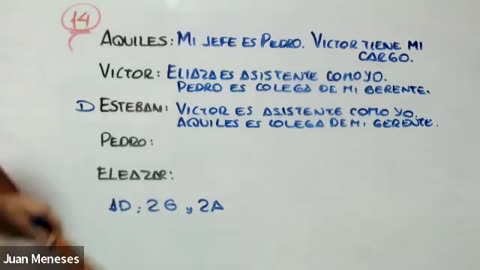 14
AQUILES: MI JEFE ES PEDRO. VICTOR TIENE MI
CARGO.
VICTOR: ELIAZA ES ASISTENTE COMO YO.
PEDRO ES COLEGA DE MI GERENTE.
D ESTEBAN: VICTOR ES ASISTENTE COMO YO.
AQUILES ES COLEGA DE MI GERENTE.
PEDRO:
ELEAZAR:
1D; 2G y 2A
Juan Meneses